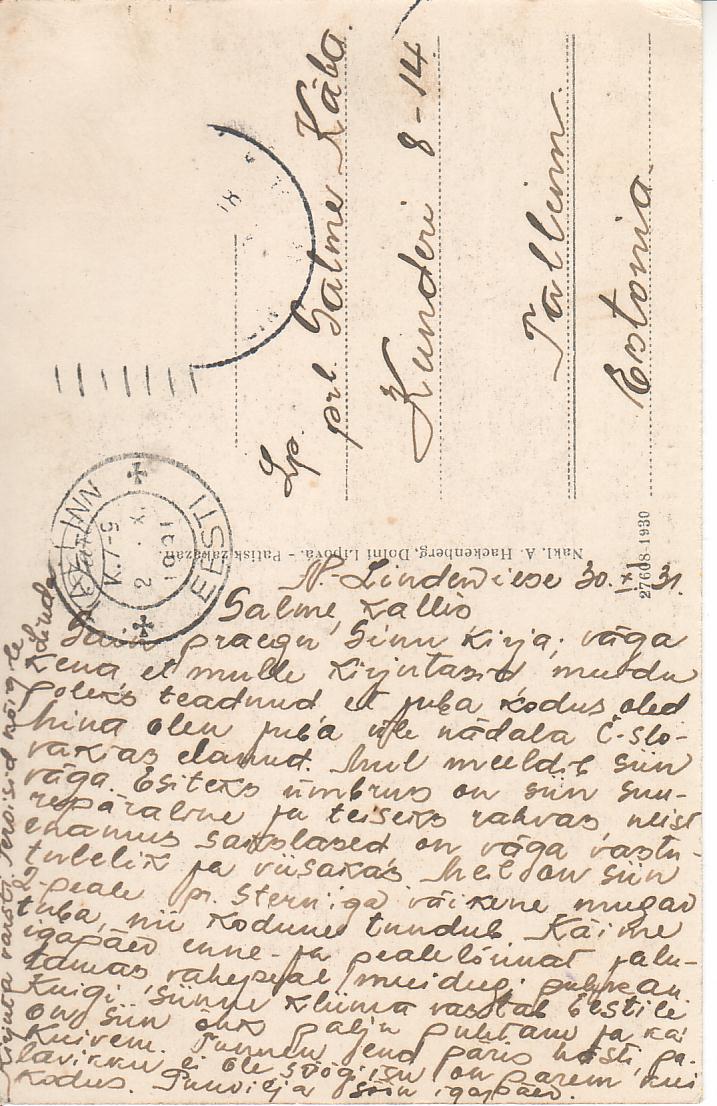 Lp.
prl. Salme Käba.
Kunderi 8-14
Tallinn.
Estonia.
TALLINN
EESTI
K. 7-9
2. X.
Nakl. A. Hackenberg, Dolní Lipová. - Patisk zakázán.
27608 1930
N.-Lindewiese 30. XI 31.
Salme, kallis
Sain praegu Sinu kirja; väga
kena, et mulle kirjutasid muidu
poleks teadnud et juba kodus oled
Mina olen juba üle nädala Č-slo-
vakias elanud. Mul meeldib siin
väga. Esiteks ümbrus on siin suu-
repäraline ja teiseks rahvas neist
enamus sakslased on väga vastu-
tulelik ja viisakas Meil on siin
2-peale pr. Stern'iga väikene mugav
tuba, nii kodune tundub Käime
igapäev enne- ja pealelõunat jalu-
tamas vahepeal muidugi puhkan.
Kuigi siinne kliima vastab Eestile
on siin õhk palju puhtam ja ka
kuivem. Tunnen end päris hästi, pa-
lavikku ei ole söögiisu on parem kui
kodus. Tunvilja siin igapäev.
Kirjuta varsti. Tervisid kõigile
Linda